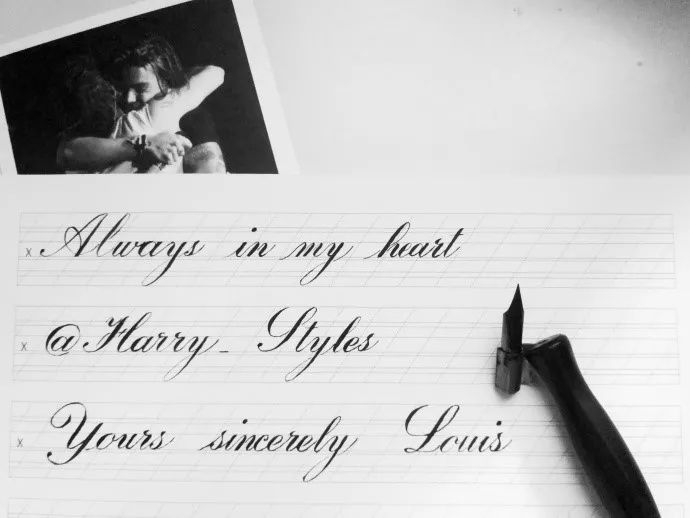 x Always in my heart
x @Harry_Styles
x Yours sincerely Louis